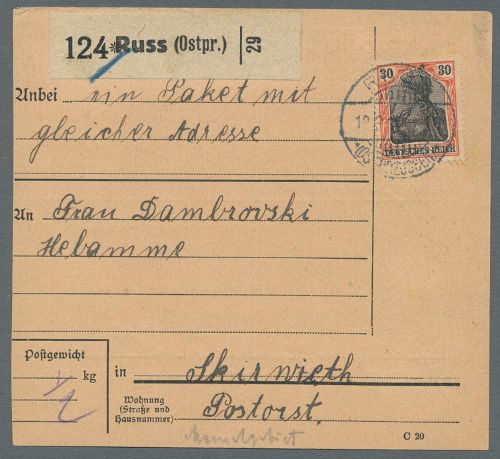 124 Russ (Ostpr.) 29
30 30
DEUTSCHES REICH
Anbei ein Paket mit
gleicher Adresse
An Frau Dambrovski
Hebamme
Postgewicht
kg
in Skirwieth
Wohnung
(Straße und
Hausnummer)
Postorst.
Memelgebiet
C 20